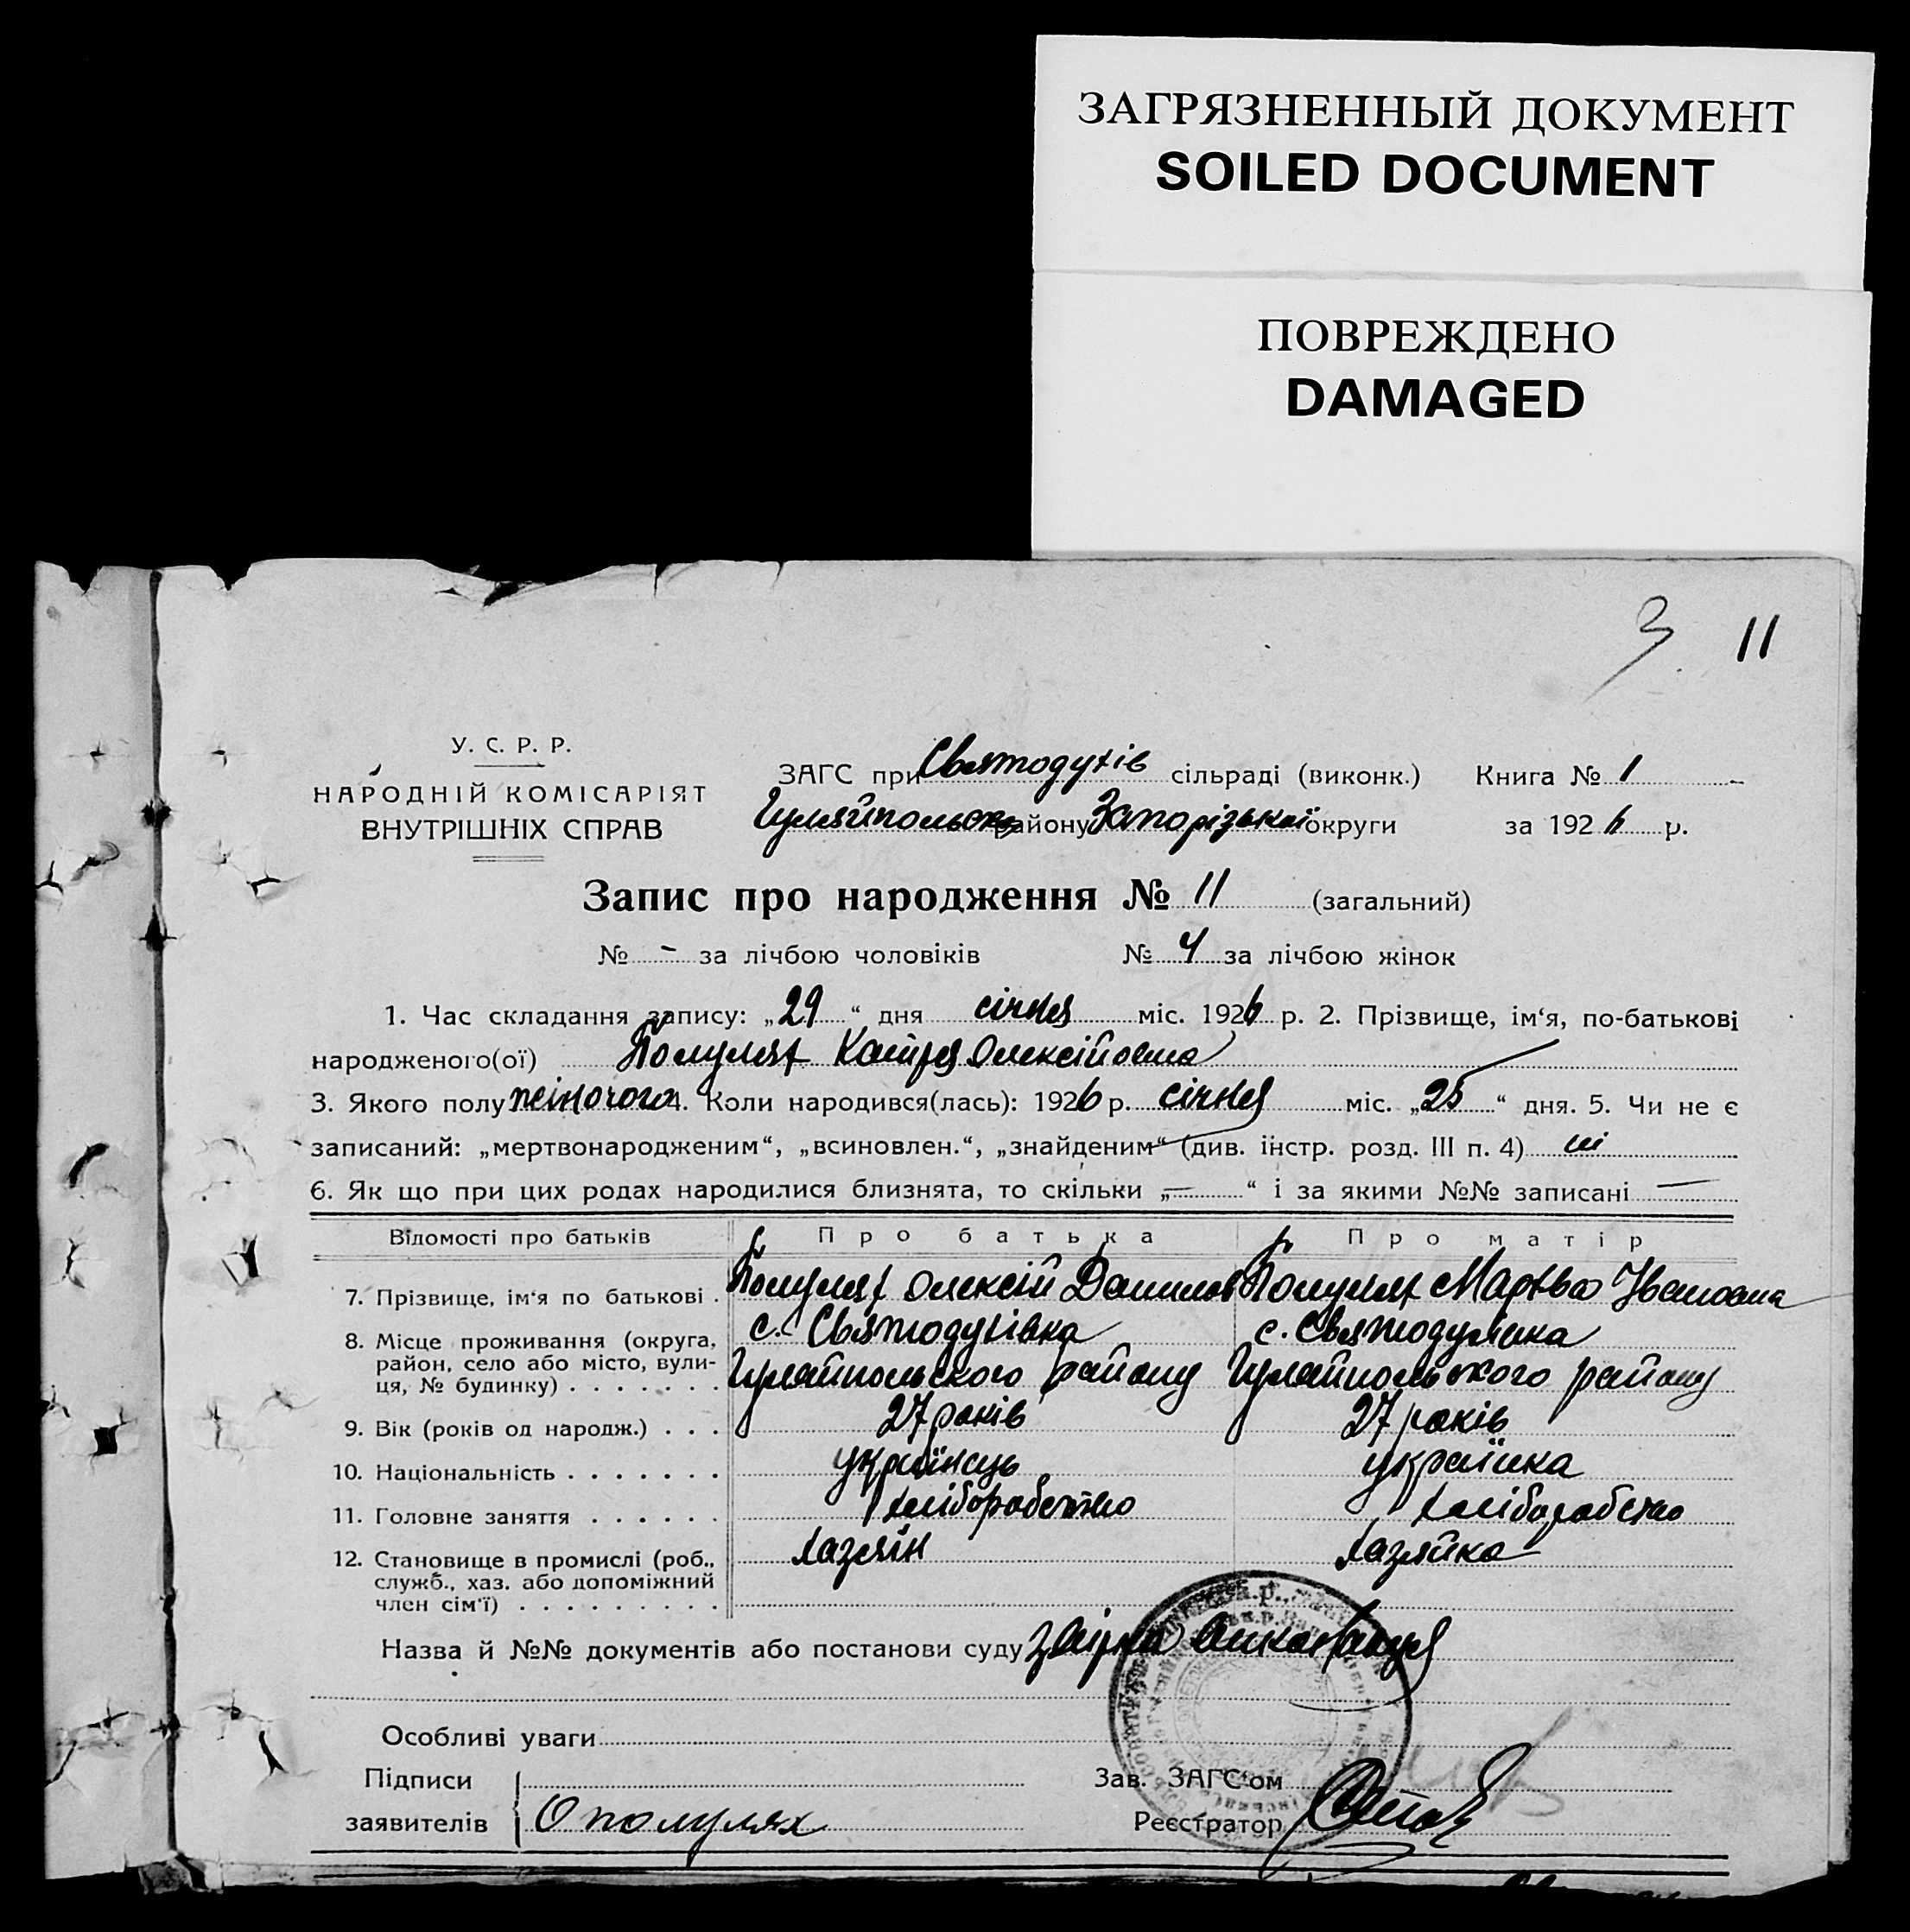 ЗАГРЯЗНЕННЫЙ ДОКУМЕНТ
SOILED DOCUMENT
ПОВРЕЖДЕНО
DAMAGED
3 11
У. С. Р. Р.
НАРОДНІЙ КОМІСАРІЯТ
ВНУТРІШНІХ СПРАВ
ЗАГС при Святодухів сільраді (виконк.) Книга № 1
Гуляйпольськ району Запорізької округи за 1926 р.
Запис про народження № 11 (загальний)
№ - за лічбою чоловіків № 4 за лічбою жінок
1. Час складання запису: „29“ дня січня міс. 1926 р. 2. Прізвище, ім‘я, по-батькові
народженого(ої) Полулях Катря Олексійовна
3. Якого полу жіночого 4. Коли народився(лась): 1926 р. січня міс. „25“ дня. 5. Чи не є
записаний: „мертвонародженим“, „всиновлен.“, „знайденим“ (див. інстр. розд. III п. 4) ні
6. Як що при цих родах народилися близнята, то скільки „—“ і за якими №№ записані —
Відомості про батьків Про батька Про матір
7. Прізвище, ім‘я по батькові . Полулях Олексій Данилов Полулях Марфа Івановна
8. Місце проживання (округа, с. Святодухівка с. Святодухівка
район, село або місто, вули- Гуляйпольского району Гуляйпольського району
ця, № будинку) . . . . . . .
9. Вік (років од народж.) . . . 27 років 27 років
10. Національність . . . . . . . українець українка
11. Головне заняття . . . . . . хліборобство хліборобство
12. Становище в промислі (роб., хазяїн хазяйка
служб., хаз. або допоміжний
член сім‘ї) . . . . . . . . .
Назва й №№ документів або постанови суду
Особливі уваги
Підписи Зав. ЗАГС‘ом
заявителів О полулях Реєстратор